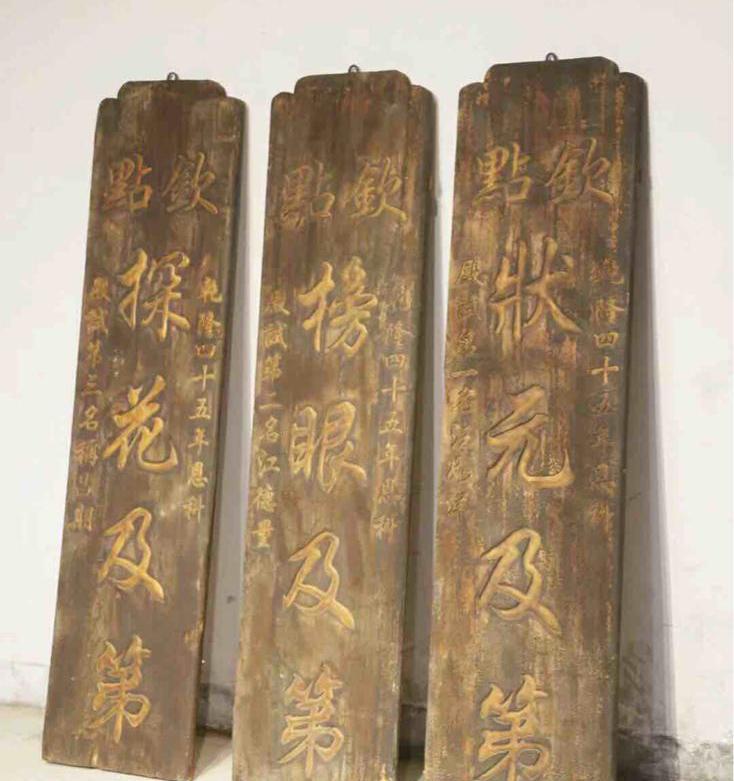 欽點
乾隆四十五年恩科
狀元及第
殿試第一名
欽點
乾隆四十五年恩科
榜眼及第
殿試第二名江德量
欽點
乾隆四十五年恩科
探花及第
殿試第三名